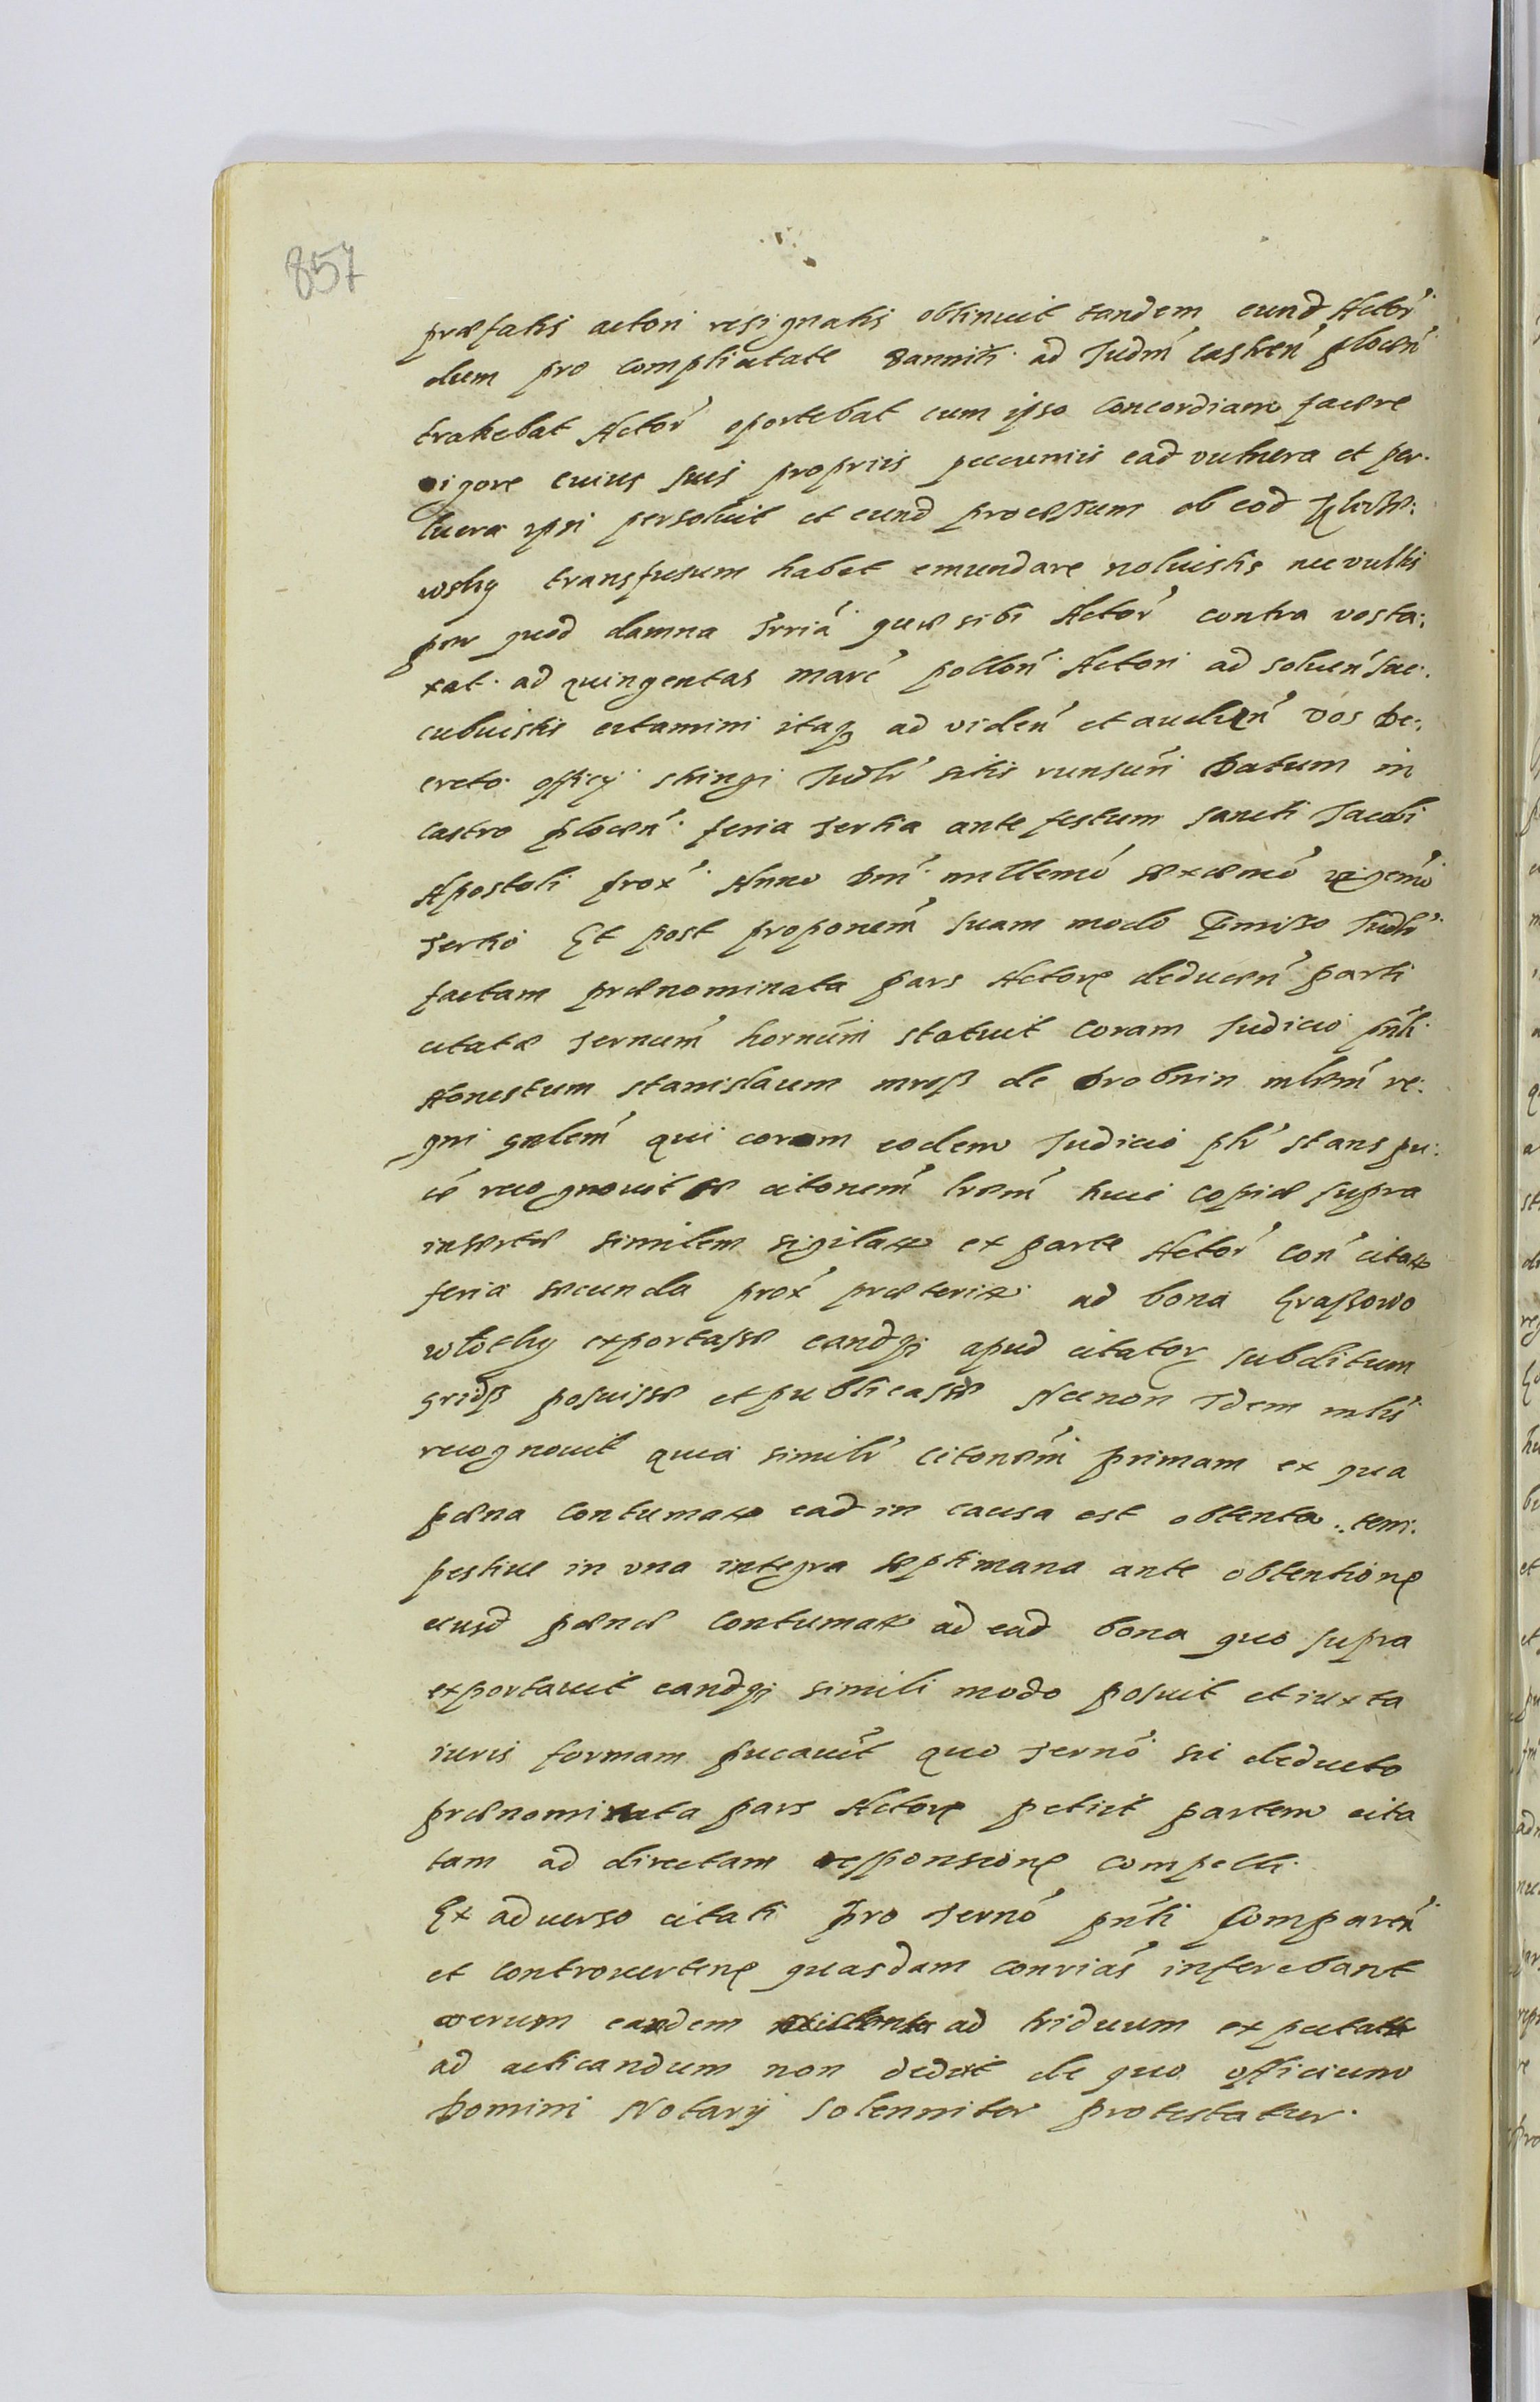 857
præfatis actori resignatis obtinuit tandem eund Actor'
dum pro complicitate banniti ad Judm' castren' plocen'
trahebat Actor' oportebat cum ipso concordiam facere
vigore cuius suis propriis pecuniis ead vulnera et per-
lucra ipsi persolvit et eund processum ab eod
wsky transfusum habet emundare noluistis nec vultis
per quod damna Trria' quæ sibi Actor' contra vos ta:
xat ad quingentas marc' pollon' Actori ad solven' suc:
cubuistis citamini itaq ad viden' et audien' vos de:
creto officij stringi Judlr' sitis runsuri Datum in
Castro plocen' feria Tertia ante festum Sancti Jacobi
Apostoli prox' Anno Dni' millemo' sexcemo' vigemo'
Tertio Et post proponem' suam modo præmisso Judlr'
factam prænominata pars Actorea deducen' parti
citatæ Termum' hornum' statuit Coram Judicio pnti
Honestum Stanislaum mroß de Drobnin mlrem' re:
gni gnlem' qui coram eodem Judicio plr' stans pu:
ce' recognovit se citonem' lrem' huic copiæ supra
insertæ similem sigilatam ex parte Actor' con' citatos
feria secunda prox' præterita ad bona Kraßowo
wlothy exportasse eandq apud citator subditum
posuisse et publicasse Necnon Idem mlrs'
recognovit quia similr' citonem' primam ex qua
pæna contumatiæ ead in causa est obtenta tem:
pestive in una integra septimana ante obtentione
eiusd pænæ contumatiæ ad ead bona quo supra
exportavit eandq simili modo posuit et iuxta
iuris formam pucavit quo Termo' sic deducto
prænominata pars Actorea petiit partem cita
tam ad directam responsionem compelli.
Ex adverso citati Pro Termo' pnti Comparen'
et controverten' quasdam convias' inferebant
verum easdem ad triduum expectatas
ad acticandum non dedit de quo officium
Domini Notarij solenniter protestatur.